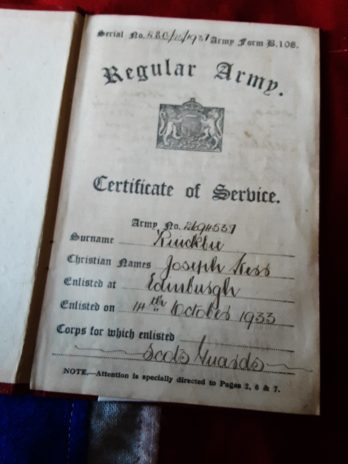 Serial No. 880/12/1937 Army Form B.108.
Regular Army.
Certificate of Service.
Army No. 2694557
Surname
Christian Names Joseph
Enlisted at Edinburgh
Enlisted on 14th October 1933
Corps for which enlisted
Scots Guards
NOTE.—Attention is specially directed to Pages 2, 6 & 7.